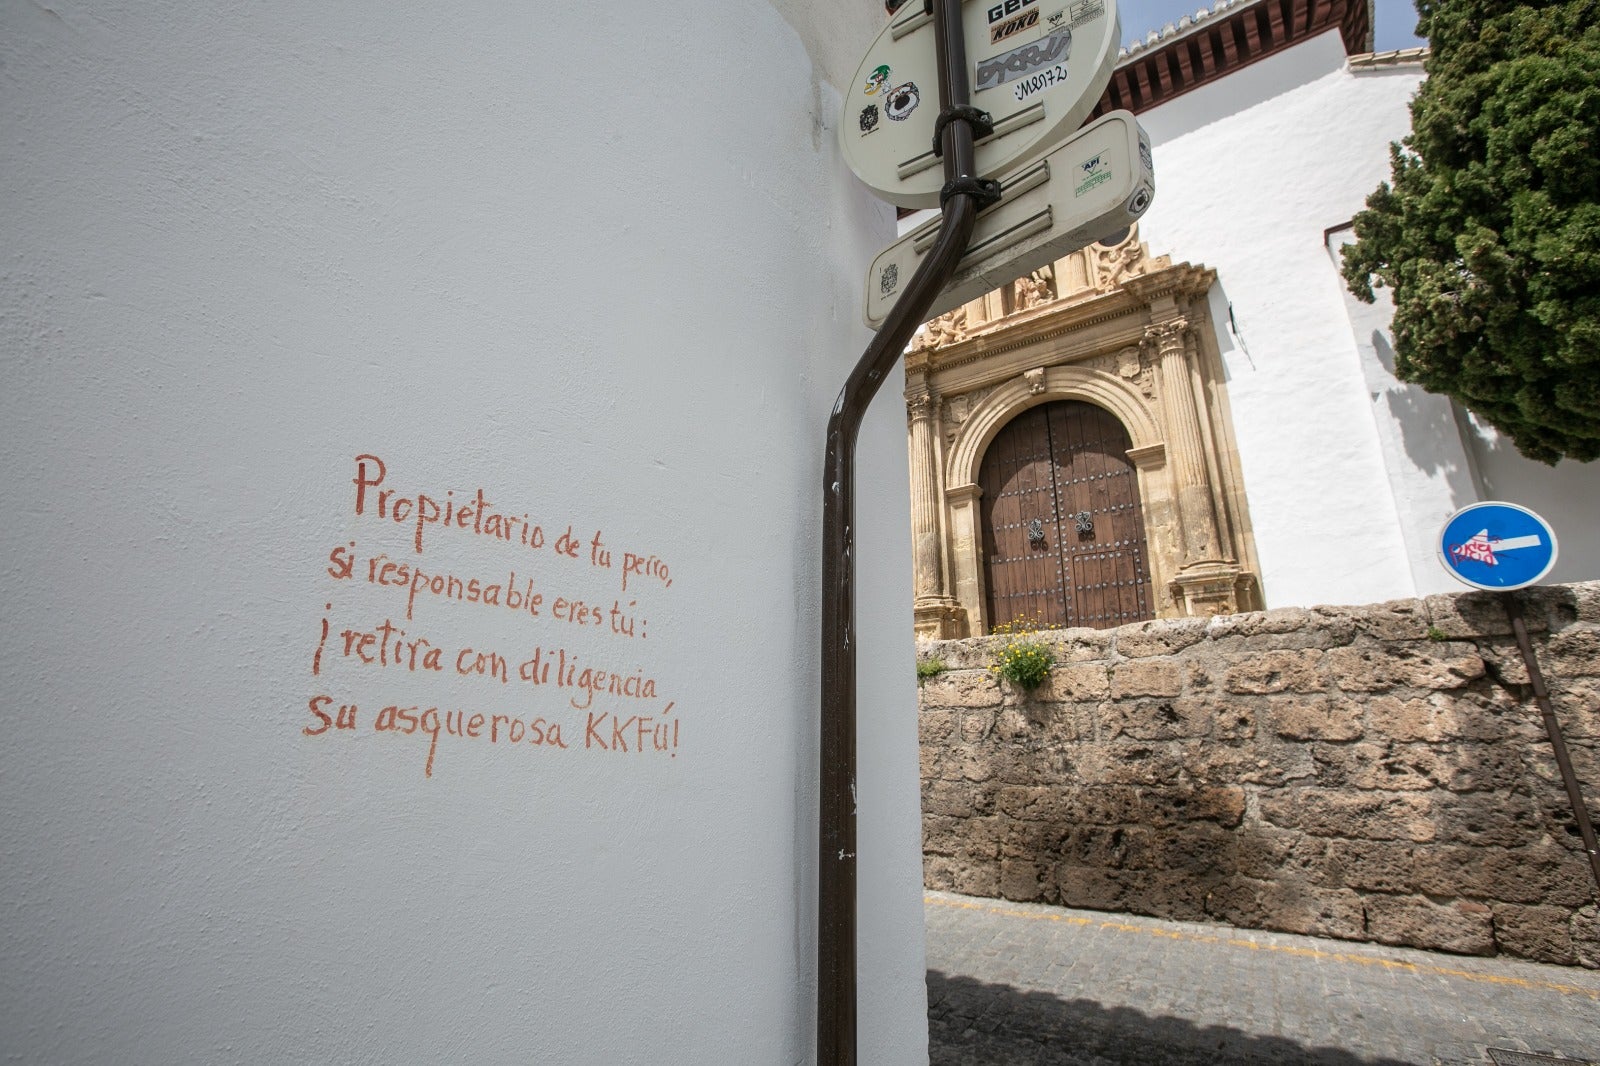 GEE
KOKO
API
API
Propietario de tu perro,
si responsable eres tú:
¡retira con diligencia,
su asquerosa KKFú!